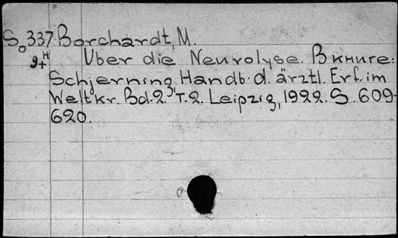 So337 Borchardt, M.
9+H Über die Neurolyse. В книге:
Schjerning. Handb. d. ärztl. Erf. im
Weltkr. Bd. 2. Т. 2. Leipzig, 1922. S. 609-
620.